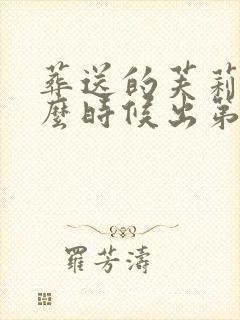 葬送的芙莉
麼時候出第
羅芳濤